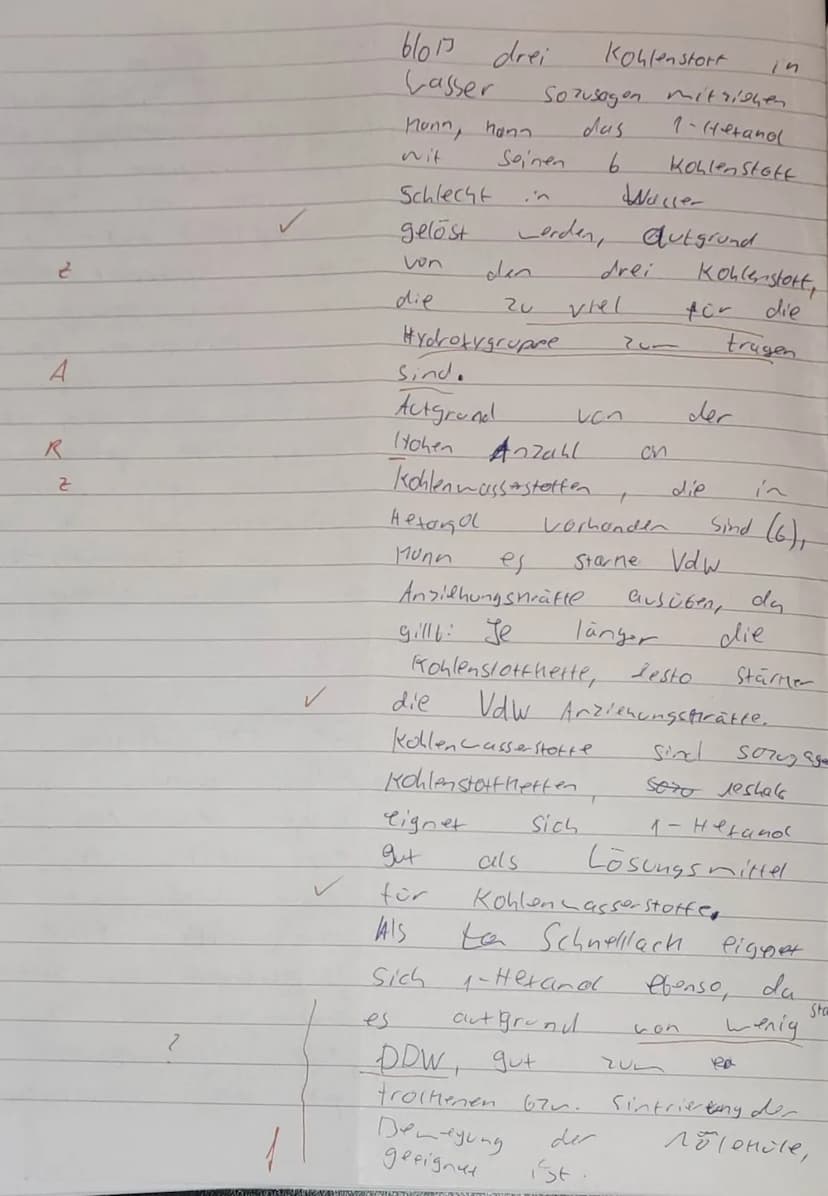 bloß drei Kohlenstoff in
Wasser sozusagen mitziehen
kann, kann das 1-Hexanol
mit seinen 6 Kohlenstoff
schlecht in Wasser
✓ gelöst werden, aufgrund
z von den drei Kohlenstoff,
die zu viel für die
Hydroxygruppe zum tragen
A sind.
Aufgrund von der
R Hohen Anzahl an
z Kohlenwasserstoffen, die in
Hexanol vorhanden sind (6),
kann es starke VdW
Anziehungskräfte ausüben, da
gillt: Je länger die
Kohlenstoffkette, desto stärker
✓ die VdW Anziehungskräfte.
Kohlenwasserstoffe sind sozusage
Kohlenstoffketten, deshalb
eignet sich 1-Hexanol
gut als Lösungsmittel
✓ für Kohlenwasserstoffe.
Als Schnelllack eignet
sich 1-Hexanol ebenso, da
es aufgrund von wenig sta
? DDW, gut zum
trockenen bzw. der
Bewegung der Moleküle,
1 geeignet ist.